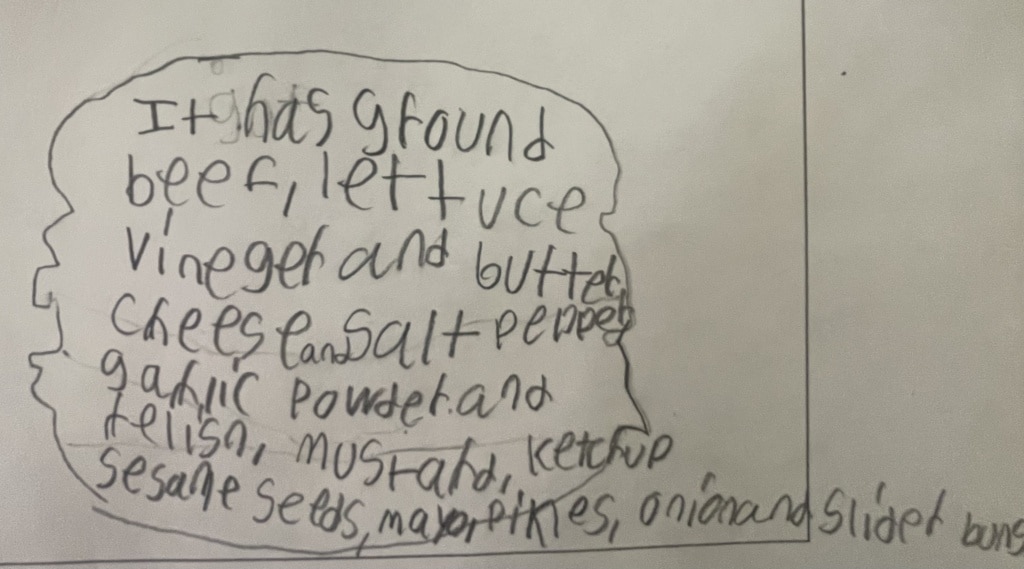 It has ground
beef, lettuce
vineger and butter,
cheese and salt pepper
garlic powder.and
relish, mustard, ketchup
sesame seeds, mayo, pikles, onion and slider buns